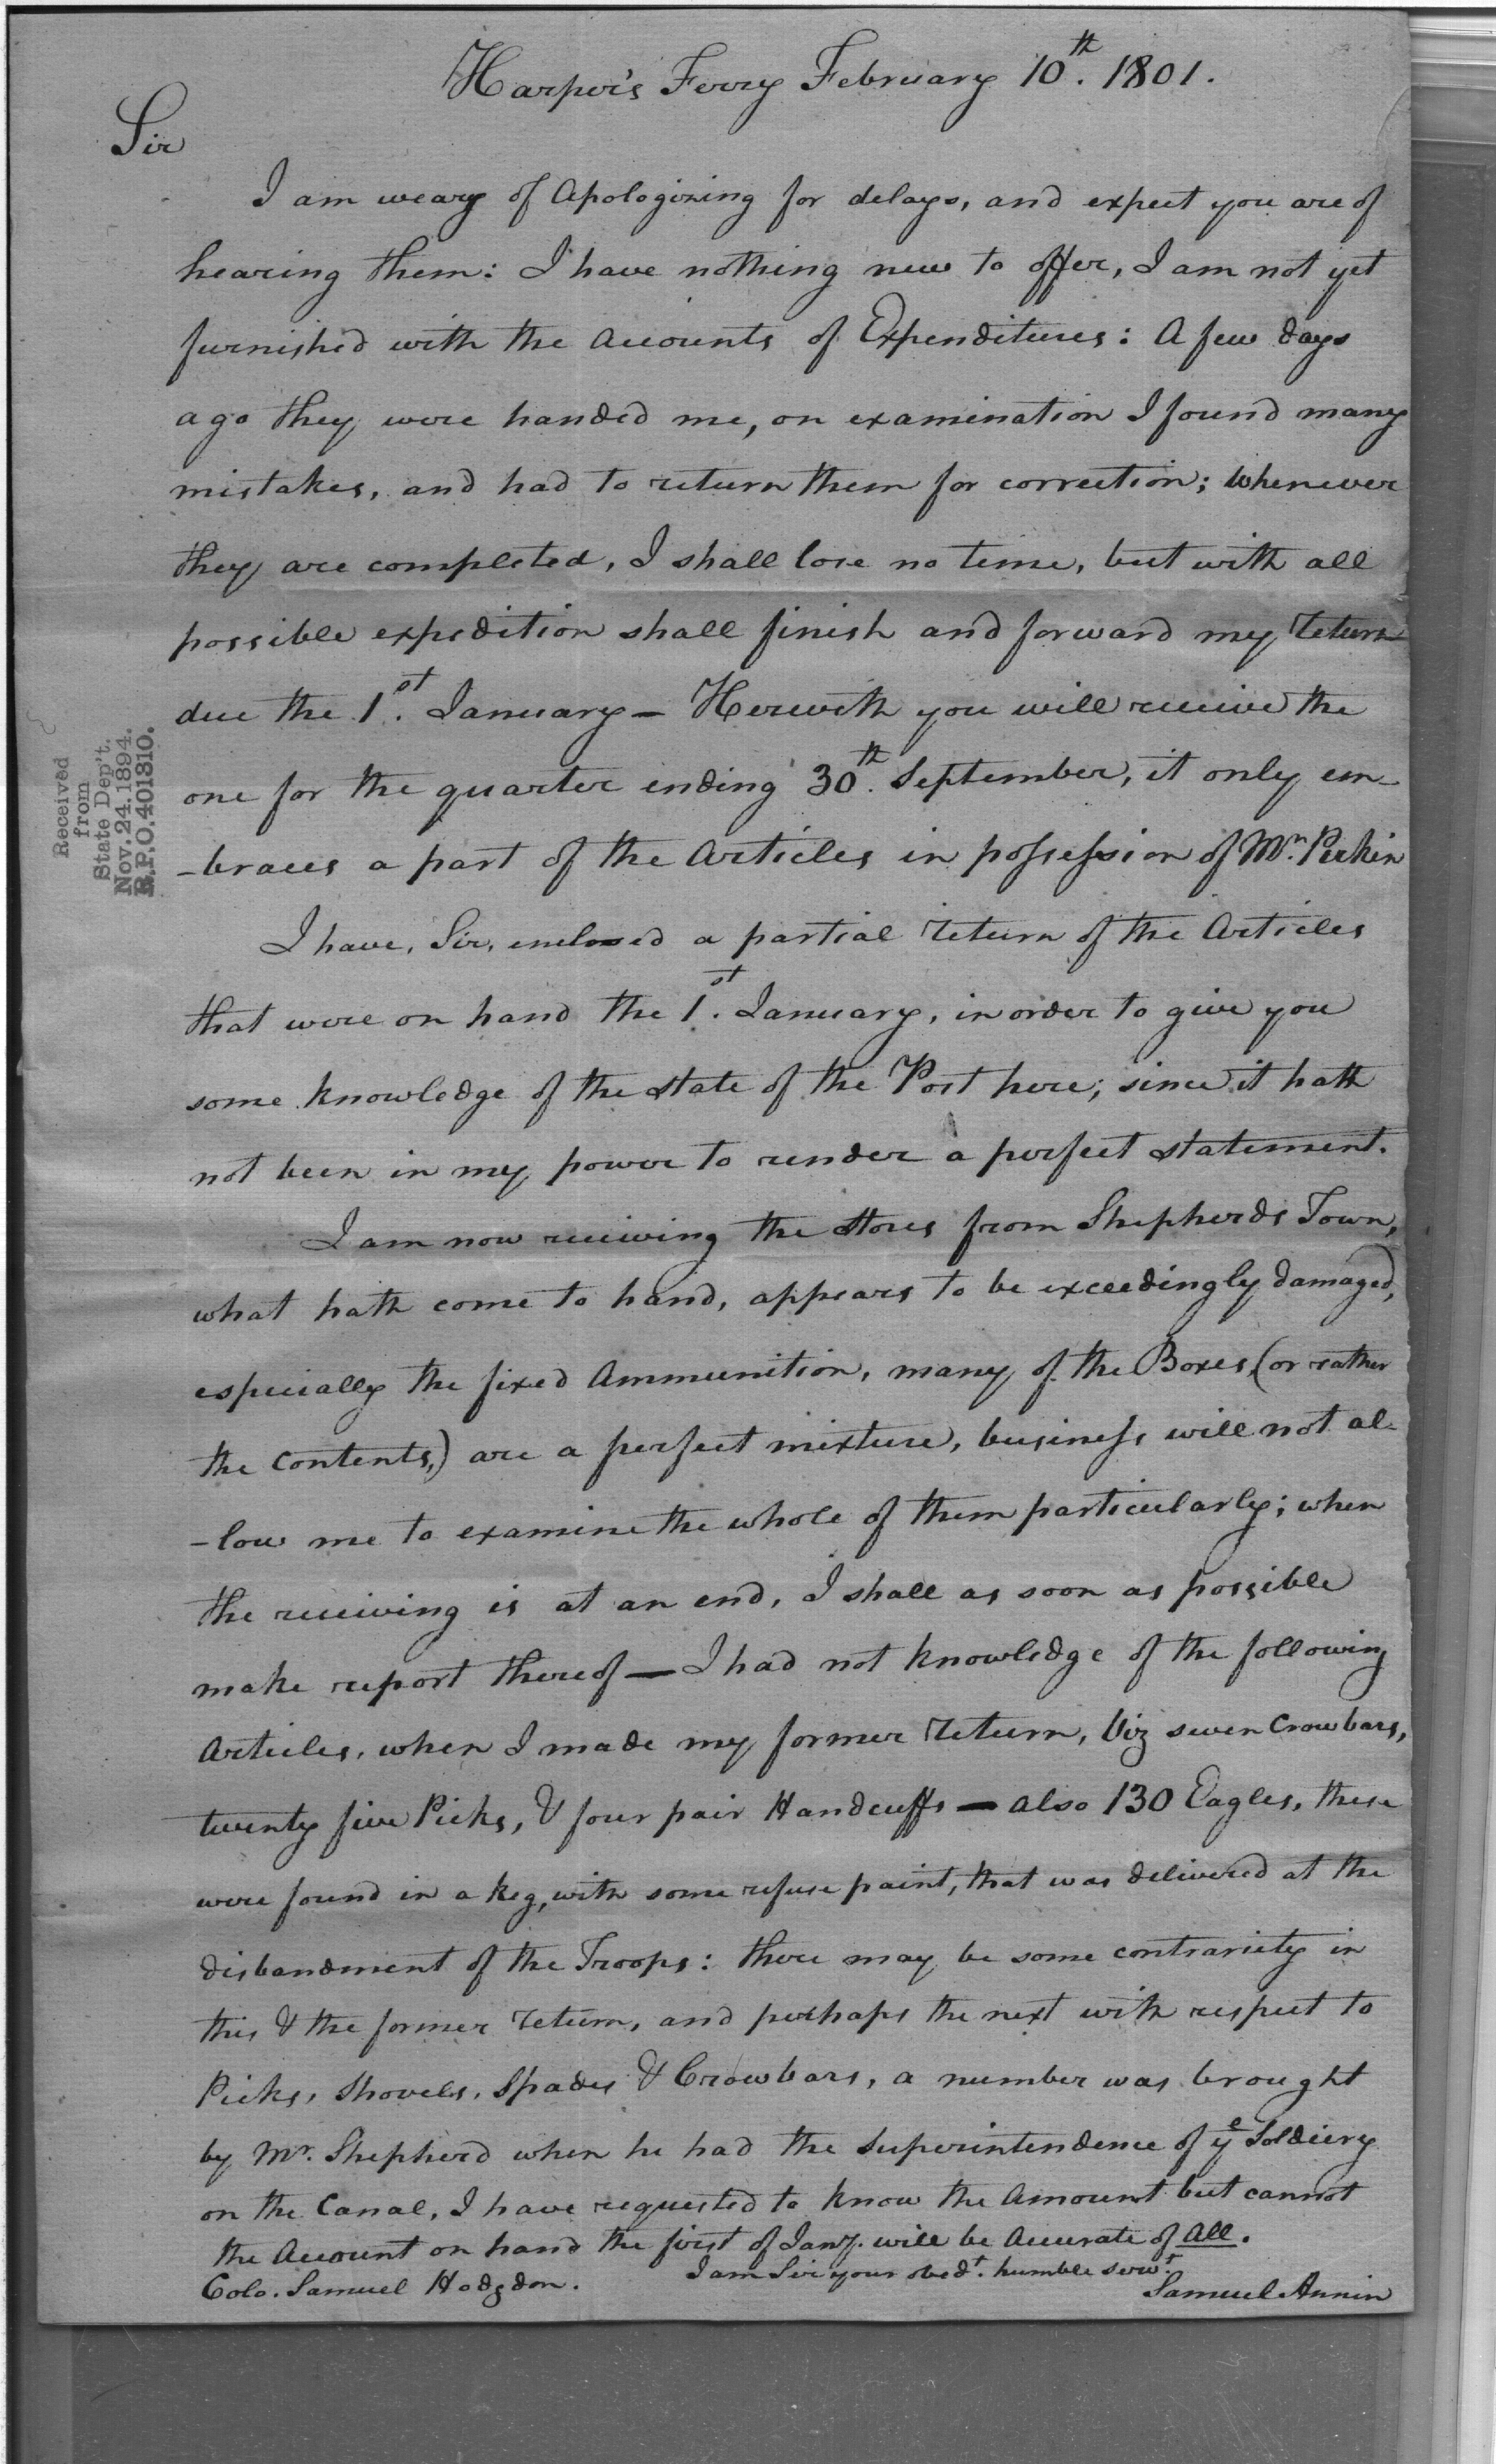 Harper's Ferry February 10th. 1801.
Sir
I am weary of Apologizing for delays, and expect you are of
hearing them: I have nothing new to offer, I am not yet
furnished with the Accounts of Expenditures: A few days
ago they were handed me, on examination I found many
mistakes, and had to return them for correction; whenever
they are completed, I shall lose no time, but with all
possible expedition shall finish and forward my return
due the 1st. January — Herewith you will receive the
one for the quarter ending 30th. September, it only em-
-braces a part of the Articles in possession of Mr. Perkin
I have, Sir, enclosed a partial return of the Articles
that were on hand the 1st. January, in order to give you
some knowledge of the state of the Post here; since it hath
not been in my power to render a perfect statement.
I am now receiving the stores from Shepherds Town,
what hath come to hand, appears to be exceedingly damaged,
especially the fixed Ammunition, many of the Boxes, (or rather
the contents,) are a perfect mixture, business will not al-
-low me to examine the whole of them particularly; when
the receiving is at an end, I shall as soon as possible
make report thereof — I had not knowledge of the following
Articles, when I made my former return, Viz seven Crowbars,
twenty five Picks, & four pair Handcuffs — also 130 Eagles, these
were found in a keg, with some refuse paint, that was delivered at the
disbandment of the Troops: there may be some contrariety in
this & the former return, and perhaps the next with respect to
Picks, Shovels, Spades & Crowbars, a number was brought
by Mr. Shepherd when he had the superintendence of ye Soldiery
on the Canal, I have requested to know the Amount but cannot
the Account on hand the first of Jany. will be Accurate of All.
I am Sir your obedt. humble servt.
Colo. Samuel Hodgdon.
Samuel Annin
Received
from
State Dep't.
Nov. 24. 1894.
R.P.O. 401310.